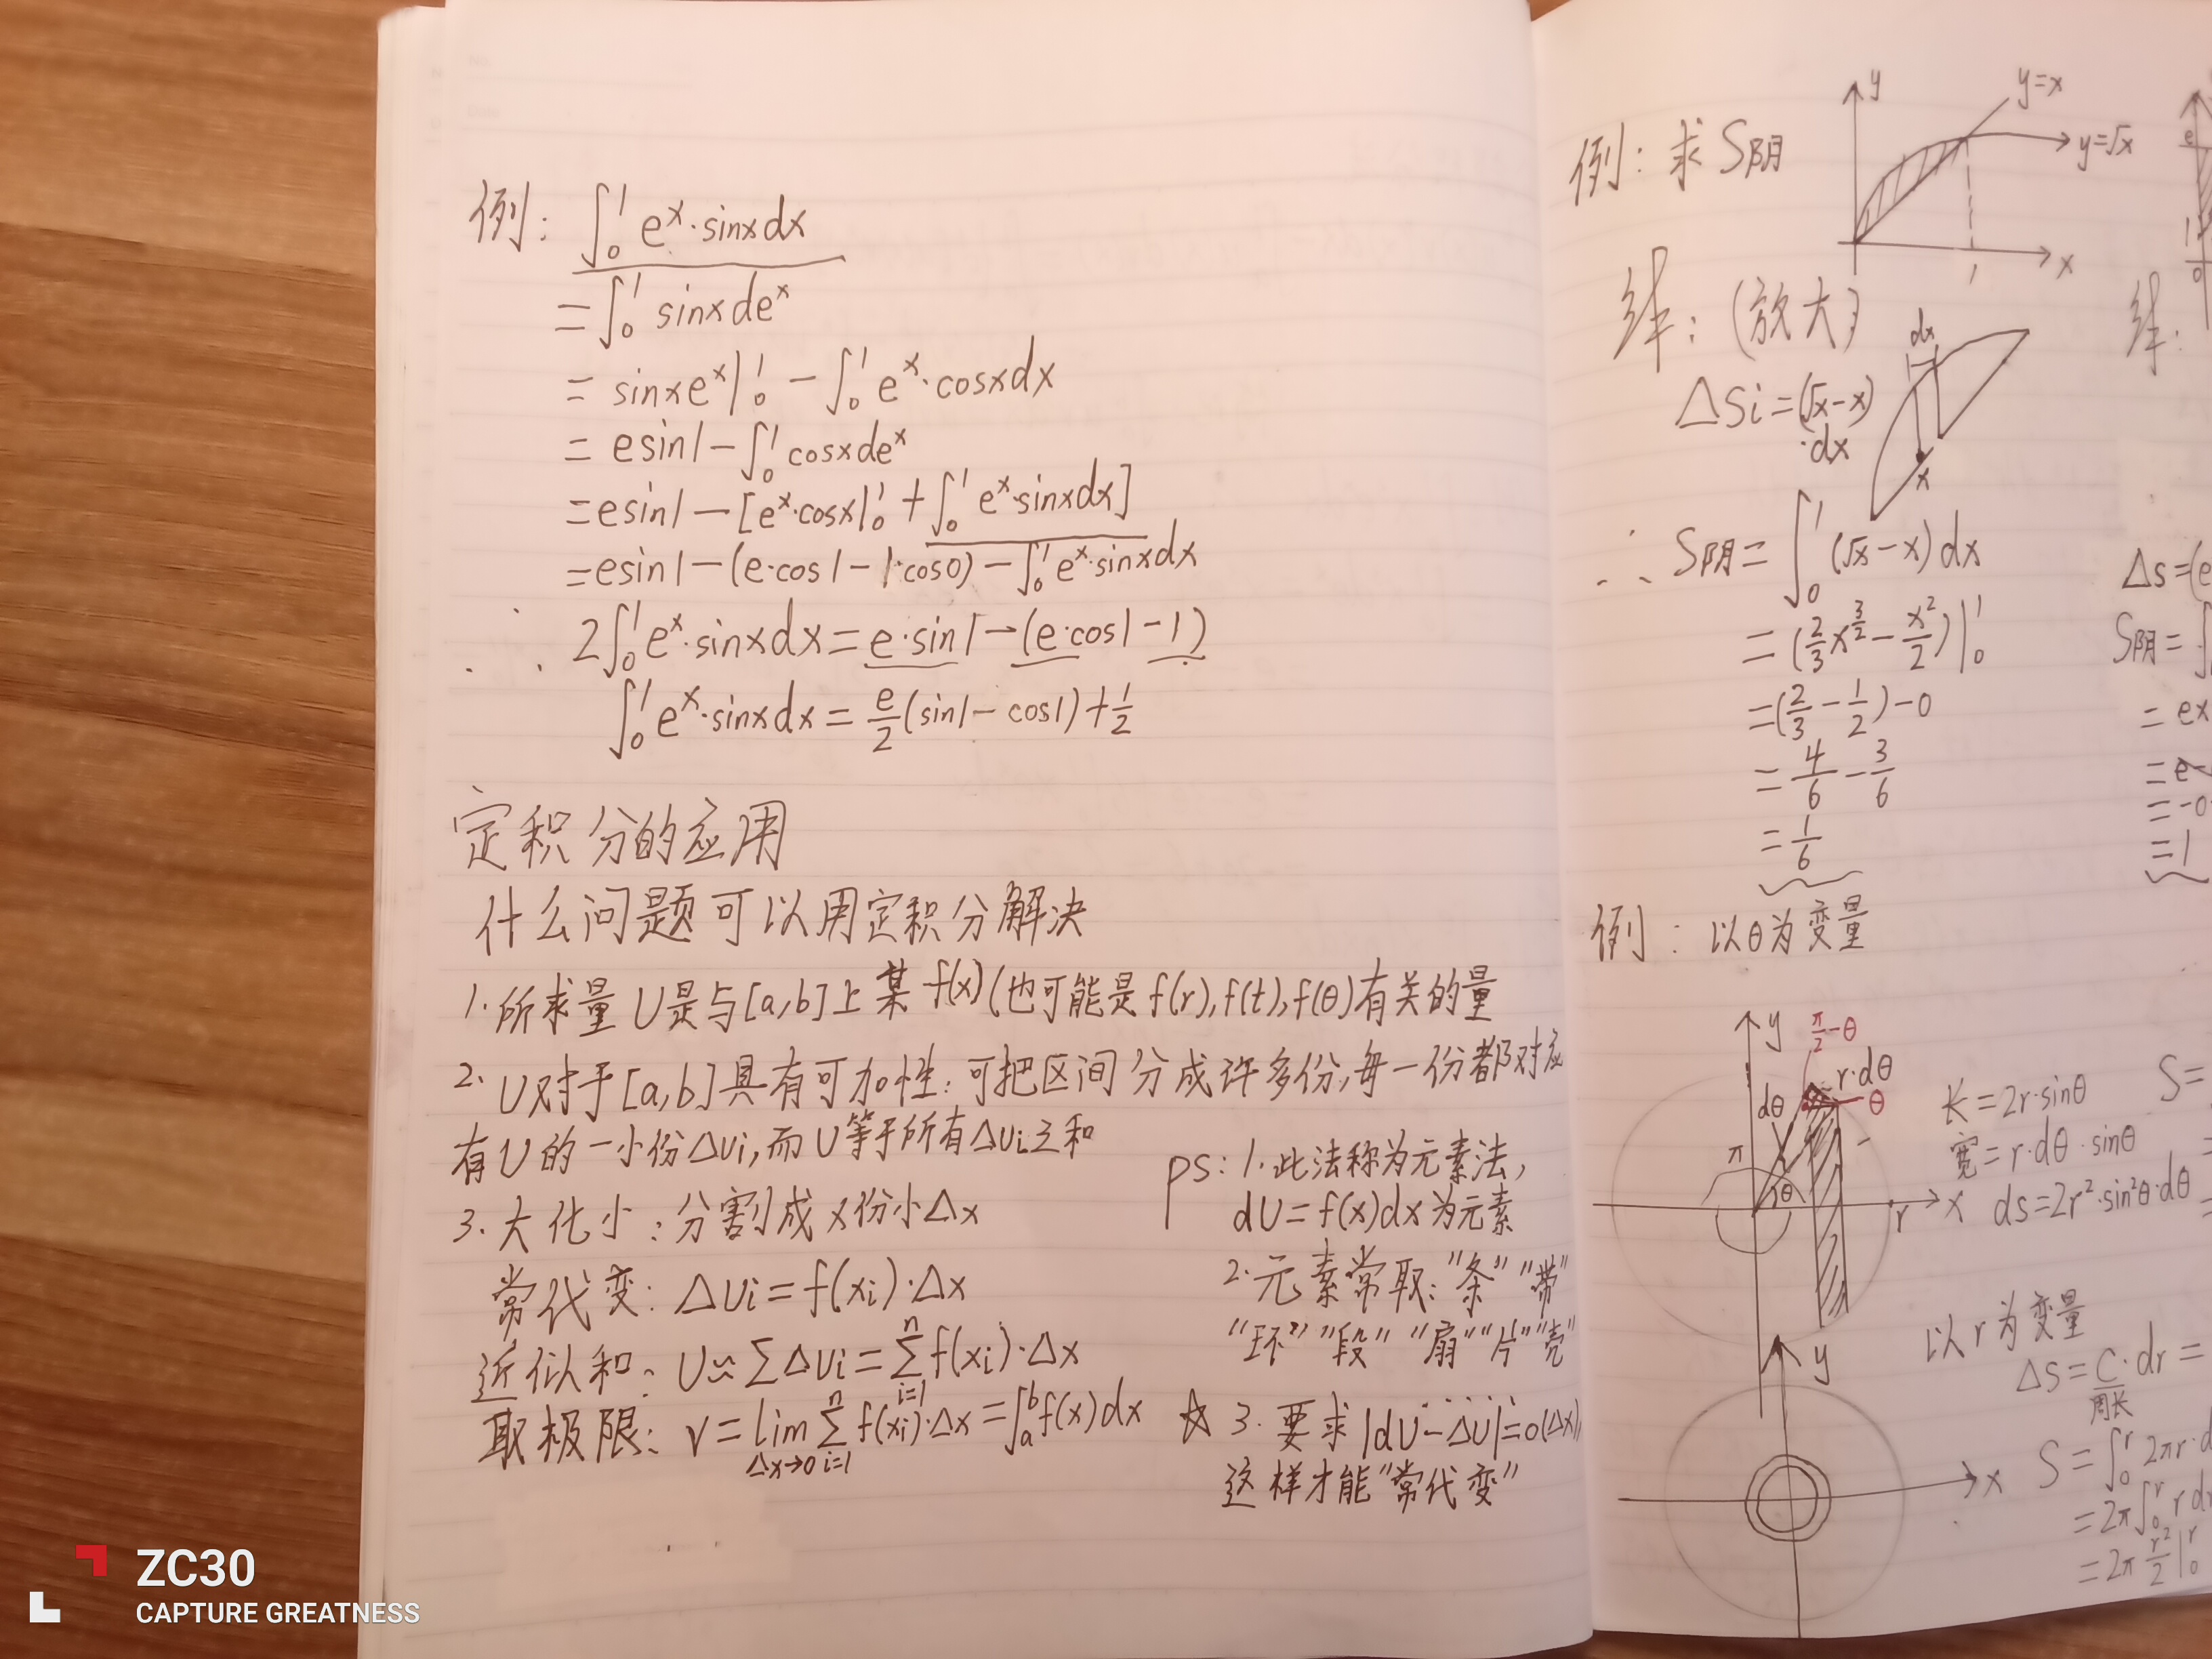 例: ∫₀¹ eˣ·sinxdx
=∫₀¹ sinxdeˣ
= sinxeˣ|₀¹ - ∫₀¹ eˣ·cosxdx
= esin1 - ∫₀¹ cosxdeˣ
=esin1 - [eˣ·cosx|₀¹ + ∫₀¹ eˣ·sinxdx]
=esin1-(e·cos1-1·cos0) - ∫₀¹ eˣ·sinxdx
∴ 2∫₀¹ eˣ·sinxdx = e·sin1-(e·cos1-1)
∫₀¹ eˣ·sinxdx = e/2(sin1-cos1)+1/2
定积分的应用
什么问题可以用定积分解决
1.所求量U是与[a,b]上某f(x)(也可能是f(r),f(t),f(θ)有关的量
2.U对于[a,b]具有可加性:可把区间分成许多份,每一份都对应
有U的一小份ΔUi,而U等于所有ΔUi之和
3.大化小:分割成x份小Δx
常代变:ΔUi=f(xi)·Δx
近似和:U≈∑ΔUi=∑ⁿᵢ₌₁f(xi)·Δx
取极限:V=lim Δx→0 ∑ⁿᵢ₌₁ f(xi)·Δx=∫ₐᵇf(x)dx
ps:1.此法称为元素法,
dU=f(x)dx为元素
2.元素常取:"条""带"
"环""段""扇""片""壳"
☆3.要求|dU-ΔU|=o(Δx),
这样才能"常代变"
例:求S阴
y
y=x
y=√x
1
x
(放大)
dx
ΔSi=(√x-x)
·dx
x
∴ S阴=∫₀¹(√x-x)dx
=(2/3x^(3/2)-x²/2)|₀¹
=(2/3-1/2)-0
=4/6-3/6
=1/6
例:以θ为变量
y
π/2-θ
r·dθ
dθ
θ
π
θ
r
x
长=2r·sinθ
宽=r·dθ·sinθ
ds=2r²·sin²θ·dθ
以r为变量
Δs=C·dr=
周长
y
x
S=∫₀ʳ2πr·d
=2π∫₀ʳ r dr
=2π r²/2|₀ʳ
e
1
0
Δs=(e
S阴=
=ex
=e-
=-0
=1
S=
ZC30
CAPTURE GREATNESS